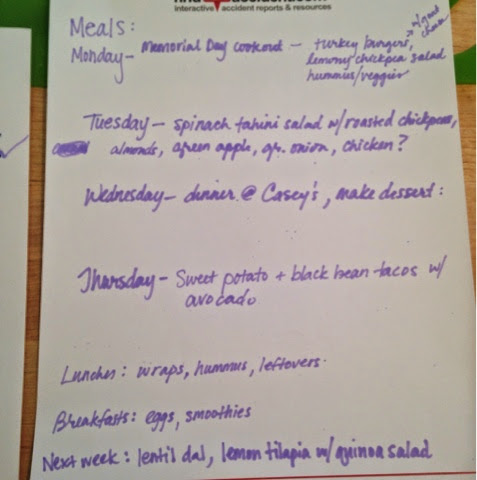 interactive accident reports & resources
Meals:
w/ goat
cheese
Monday- Memorial Day cookout - turkey burgers,
lemony chickpea salad
hummus/veggies
Tuesday - spinach tahini salad w/roasted chickpeas,
almonds, green apple, gr. onion, chicken?
Wednesday - dinner @ Casey's, make dessert:
Thursday - Sweet potato + black bean tacos w/
avocado
Lunches: wraps, hummus, leftovers.
Breakfasts: eggs, smoothies
Next week: lentil dal, lemon tilapia w/ quinoa salad